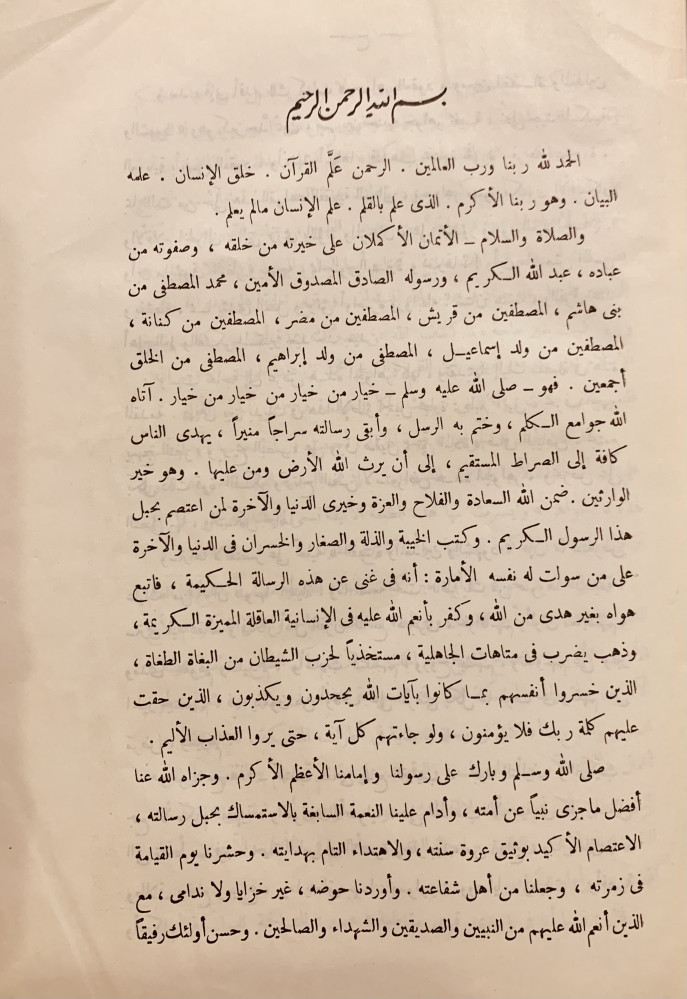 بسم الله الرحمن الرحيم
الحمد لله ربنا ورب العالمين . الرحمن عَلَّم القرآن . خلق الإنسان . علمه
البيان . وهو ربنا الأكرم . الذى علم بالقلم . علم الإنسان مالم يعلم .
والصلاة والسلام ــ الأتمان الأكملان على خيرته من خلقه ، وصفوته من
عباده ، عبد الله الكريم ، ورسوله الصادق المصدوق الأمين ، محمد المصطفى من
بنى هاشم ، المصطفين من قريش ، المصطفين من مضر ، المصطفين من كنانة ،
المصطفين من ولد إسماعيل ، المصطفى من ولد إبراهيم ، المصطفى من الخلق
أجمعين . فهو ــ صلى الله عليه وسلم ــ خيار من خيار من خيار من خيار . آتاه
الله جوامع الكلم ، وختم به الرسل ، وأبقى رسالته سراجاً منيراً ، يهدى الناس
كافة إلى الصراط المستقيم ، إلى أن يرث الله الأرض ومن عليها . وهو خير
الوارثين . ضمن الله السعادة والفلاح والعزة وخيرى الدنيا والآخرة لمن اعتصم بحبل
هذا الرسول الكريم . وكتب الخيبة والذلة والصغار والخسران فى الدنيا والآخرة
على من سولت له نفسه الأمارة : أنه فى غنى عن هذه الرسالة الحكيمة ، فاتبع
هواه بغير هدى من الله ، وكفر بأنعم الله عليه فى الإنسانية العاقلة المميزة الكريمة ،
وذهب يضرب فى متاهات الجاهلية ، مستخذياً لحزب الشيطان من البغاة الطغاة ،
الذين خسروا أنفسهم بما كانوا بآيات الله يجحدون ويكذبون ، الذين حقت
عليهم كلمة ربك فلا يؤمنون ، ولو جاءتهم كل آية ، حتى يروا العذاب الأليم .
صلى الله وسلم وبارك على رسولنا وإمامنا الأعظم الأكرم . وجزاه الله عنا
أفضل ماجزى نبياً عن أمته ، وأدام علينا النعمة السابغة بالاستمساك بحبل رسالته ،
الاعتصام الأكيد بوثيق عروة سنته ، والاهتداء التام بهدايته . وحشرنا يوم القيامة
فى زمرته ، وجعلنا من أهل شفاعته . وأوردنا حوضه ، غير خزايا ولا ندامى ، مع
الذين أنعم الله عليهم من النبيين والصديقين والشهداء والصالحين . وحسن أولئك رفيقاً